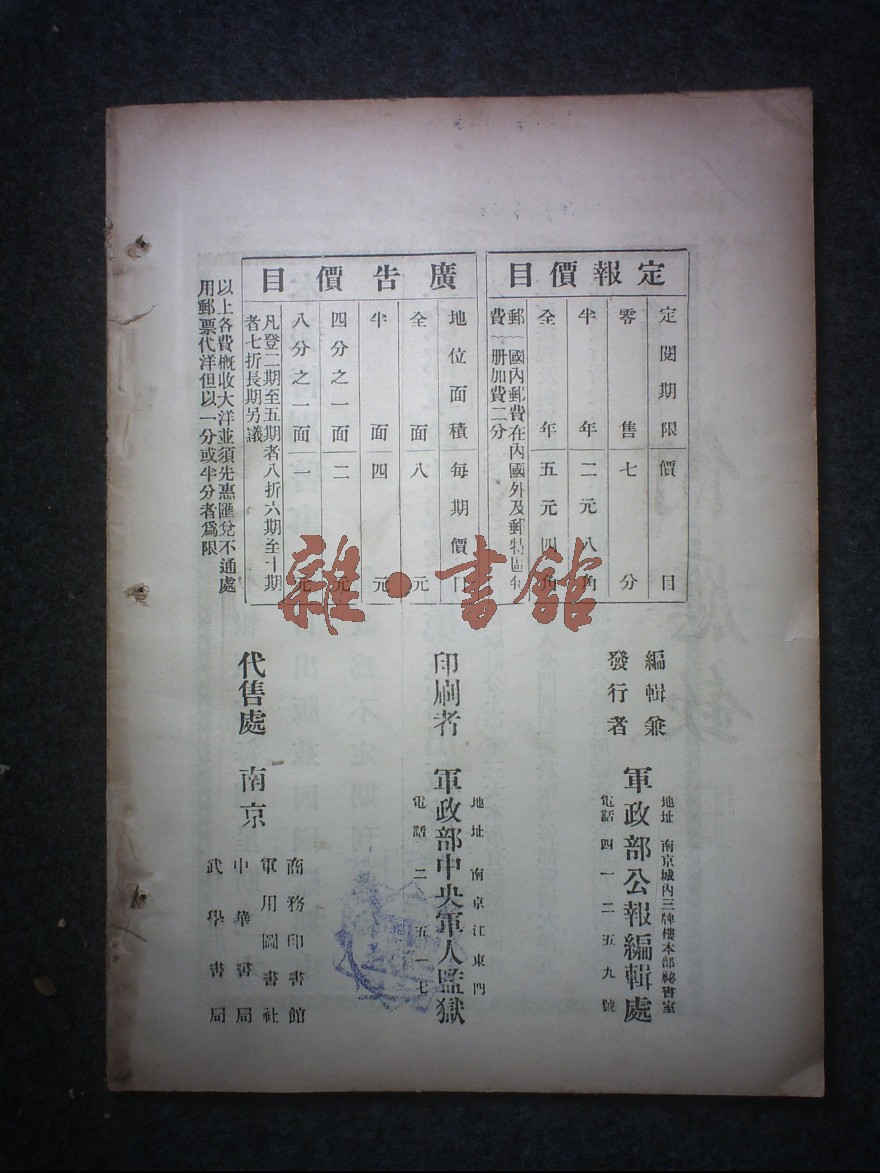 定報價目
定閱期限 價目
零售 七分
半年 二元八角
全年 五元四角
郵費 國內郵費在內國外及郵特區每
册加費二分
廣告價目
地位面積 每期價目
全面 八元
半面 四元
四分之一面 二元
八分之一面 一元
凡登二期至五期者八折六期至十期
者七折長期另議
以上各費概收大洋並須先惠匯兌不通處
用郵票代洋但以一分或半分者爲限
編輯兼
發行者
地址 南京城內三牌樓本部祕書室
軍政部公報編輯處
電話 四一二五九號
印刷者
地址 南京江東門
軍政部中央軍人監獄
電話 二二五一七
代售處 南京
商務印書館
軍用圖書社
中華書局
武學書局
雜·書館